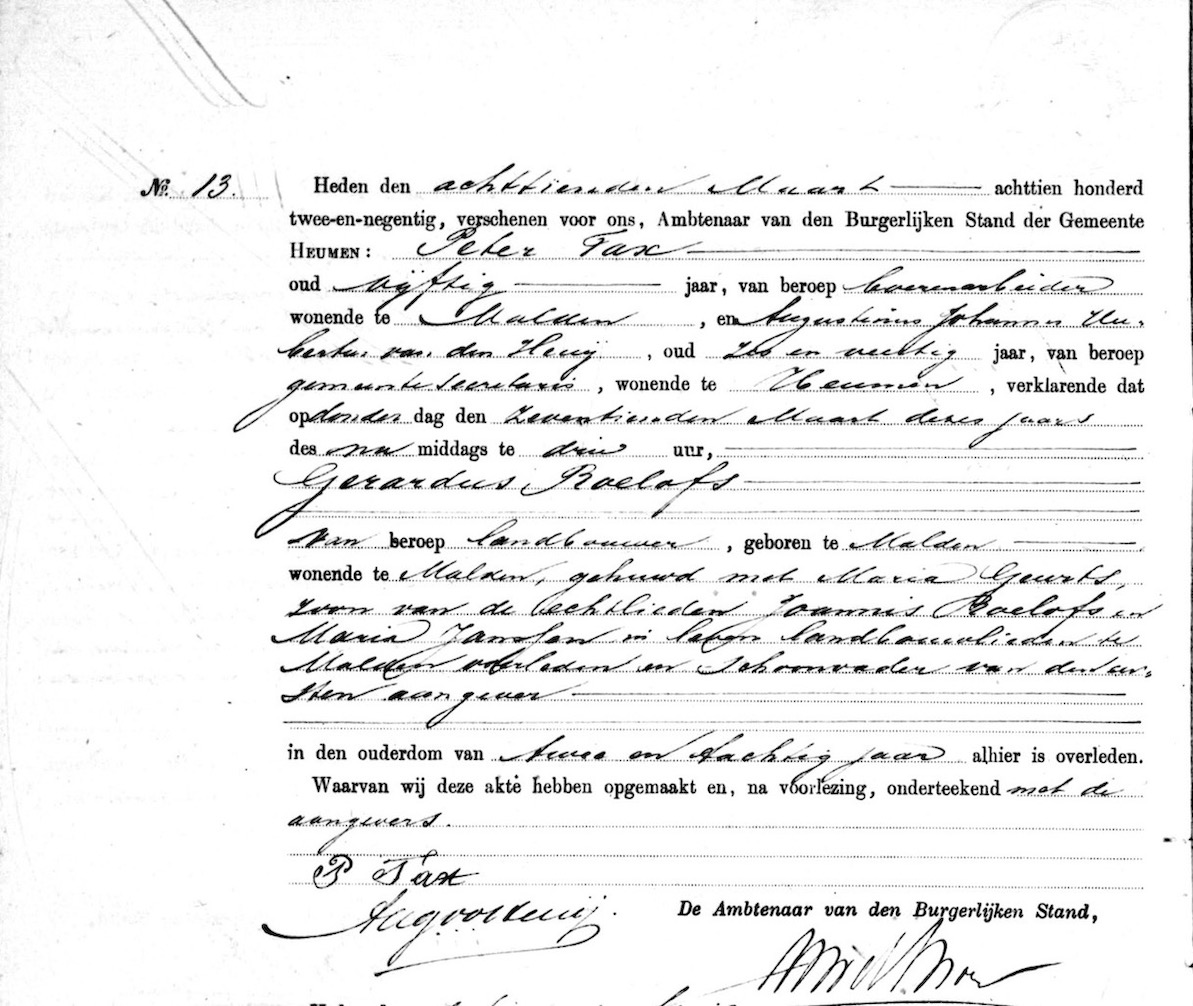 №. 13. Heden den achttienden Maart achttien honderd
twee-en-negentig, verschenen voor ons, Ambtenaar van den Burgerlijken Stand der Gemeente
HEUMEN: Peter Tax
oud vijftig jaar, van beroep boerenarbeider
wonende te Malden, en Augustinus Johannes Hu-
bertus van den Heuij, oud zes en veertig jaar, van beroep
gemeente secretaris, wonende te Heumen, verklarende dat
op donder dag den zeventienden Maart dezes jaars
des na middags te drie uur,
Gerardus Roelofs
van beroep landbouwer, geboren te Malden
wonende te Malden, gehuwd met Maria Geurts,
zoon van de echtlieden Joannis Roelofs en
Maria Janssen in leven landbouwlieden te
Malden overleden en schoonvader van den eer-
sten aangever
in den ouderdom van twee en tachtig jaar alhier is overleden.
Waarvan wij deze akte hebben opgemaakt en, na voorlezing, onderteekend met de
aangevers.
P Tax
De Ambtenaar van den Burgerlijken Stand,